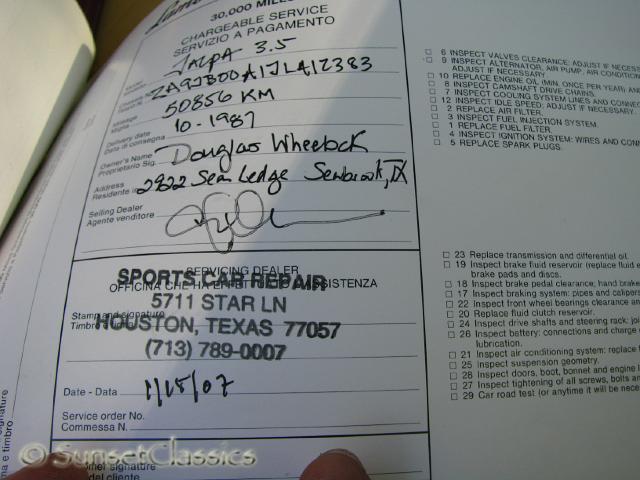 30,000 MILES
CHARGEABLE SERVICE
SERVIZIO A PAGAMENTO
JALPA 3.5
ZA9JB00A1JLA12383
50856 KM
Delivery date
Data di consegna
10-1987
Owner's Name
Proprietario Sig.
Douglas Wheelock
Address
Residente in
2922 Sea Ledge Seabrook, TX
Selling Dealer
Agente venditore
SERVICING DEALER
OFFICINA CHE HA EFFETTUATO L'ASSISTENZA
SPORTS CAR REPAIR
5711 STAR LN
Stamp and signature
Timbro e firma
HOUSTON, TEXAS 77057
(713) 789-0007
Date - Data
1/15/07
Service order No.
Commessa N.
signature
del cliente
© SunsetClassics
6 INSPECT VALVES CLEARANCE: ADJUST IF NECESS
9 INSPECT ALTERNATOR, AIR PUMP, AIR CONDITION
ADJUST IF NECESSARY.
10 REPLACE ENGINE OIL (MIN. ONCE PER YEAR) AND
8 INSPECT CAMSHAFT DRIVE CHAINS.
7 INSPECT COOLING SYSTEM LINES AND CONNE
12 INSPECT IDLE SPEED: ADJUST IF NECESSARY.
2 REPLACE AIR FILTER.
3 INSPECT FUEL INJECTION SYSTEM.
1 REPLACE FUEL FILTER.
4 INSPECT IGNITION SYSTEM: WIRES AND CONN
5 REPLACE SPARK PLUGS.
23 Replace transmission and differential oil.
19 Inspect brake fluid reservoir (replace fluid e
brake pads and discs.
18 Inspect brake pedal clearance, hand brake
17 Inspect braking system: pipes and calipers
22 Inspect front wheel bearings clearance an
20 Replace fluid clutch reservoir.
24 Inspect drive shafts and steering rack: joi
26 Inspect battery: connections and charge c
lubrication.
21 Inspect air conditioning system: replace f
25 Inspect suspension geometry.
28 Inspect doors, boot, bonnet and engine l
27 Inspect tightening of all screws, bolts an
29 Car road test (or anytime it will be nece